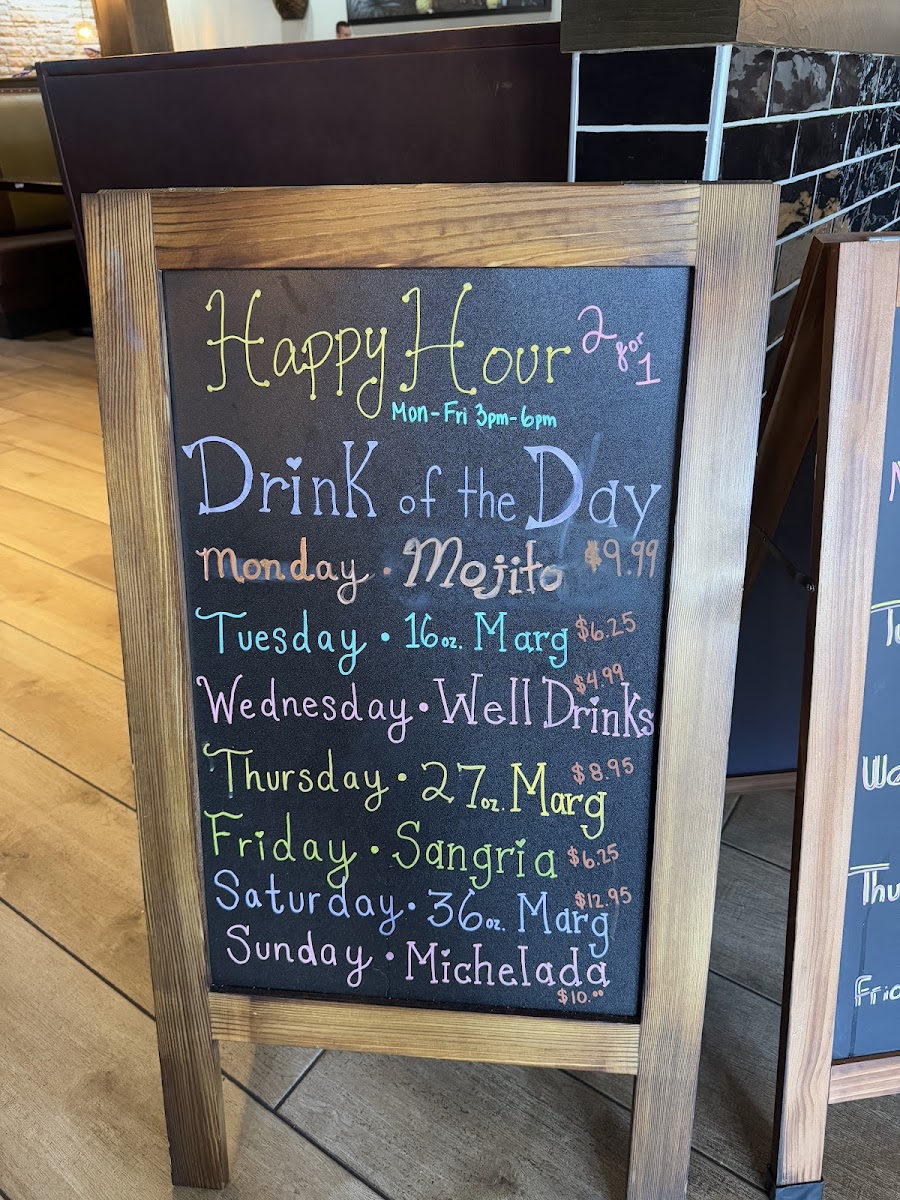 Happy Hour 2 for 1
Mon-Fri 3pm-6pm
Drink of the Day
Monday • Mojito $9.99
Tuesday • 16oz. Marg $6.25
$4.99
Wednesday • Well Drinks
Thursday • 27oz. Marg $8.95
Friday • Sangria $6.25
Saturday • 36oz. Marg $12.95
Sunday • Michelada
$10.00